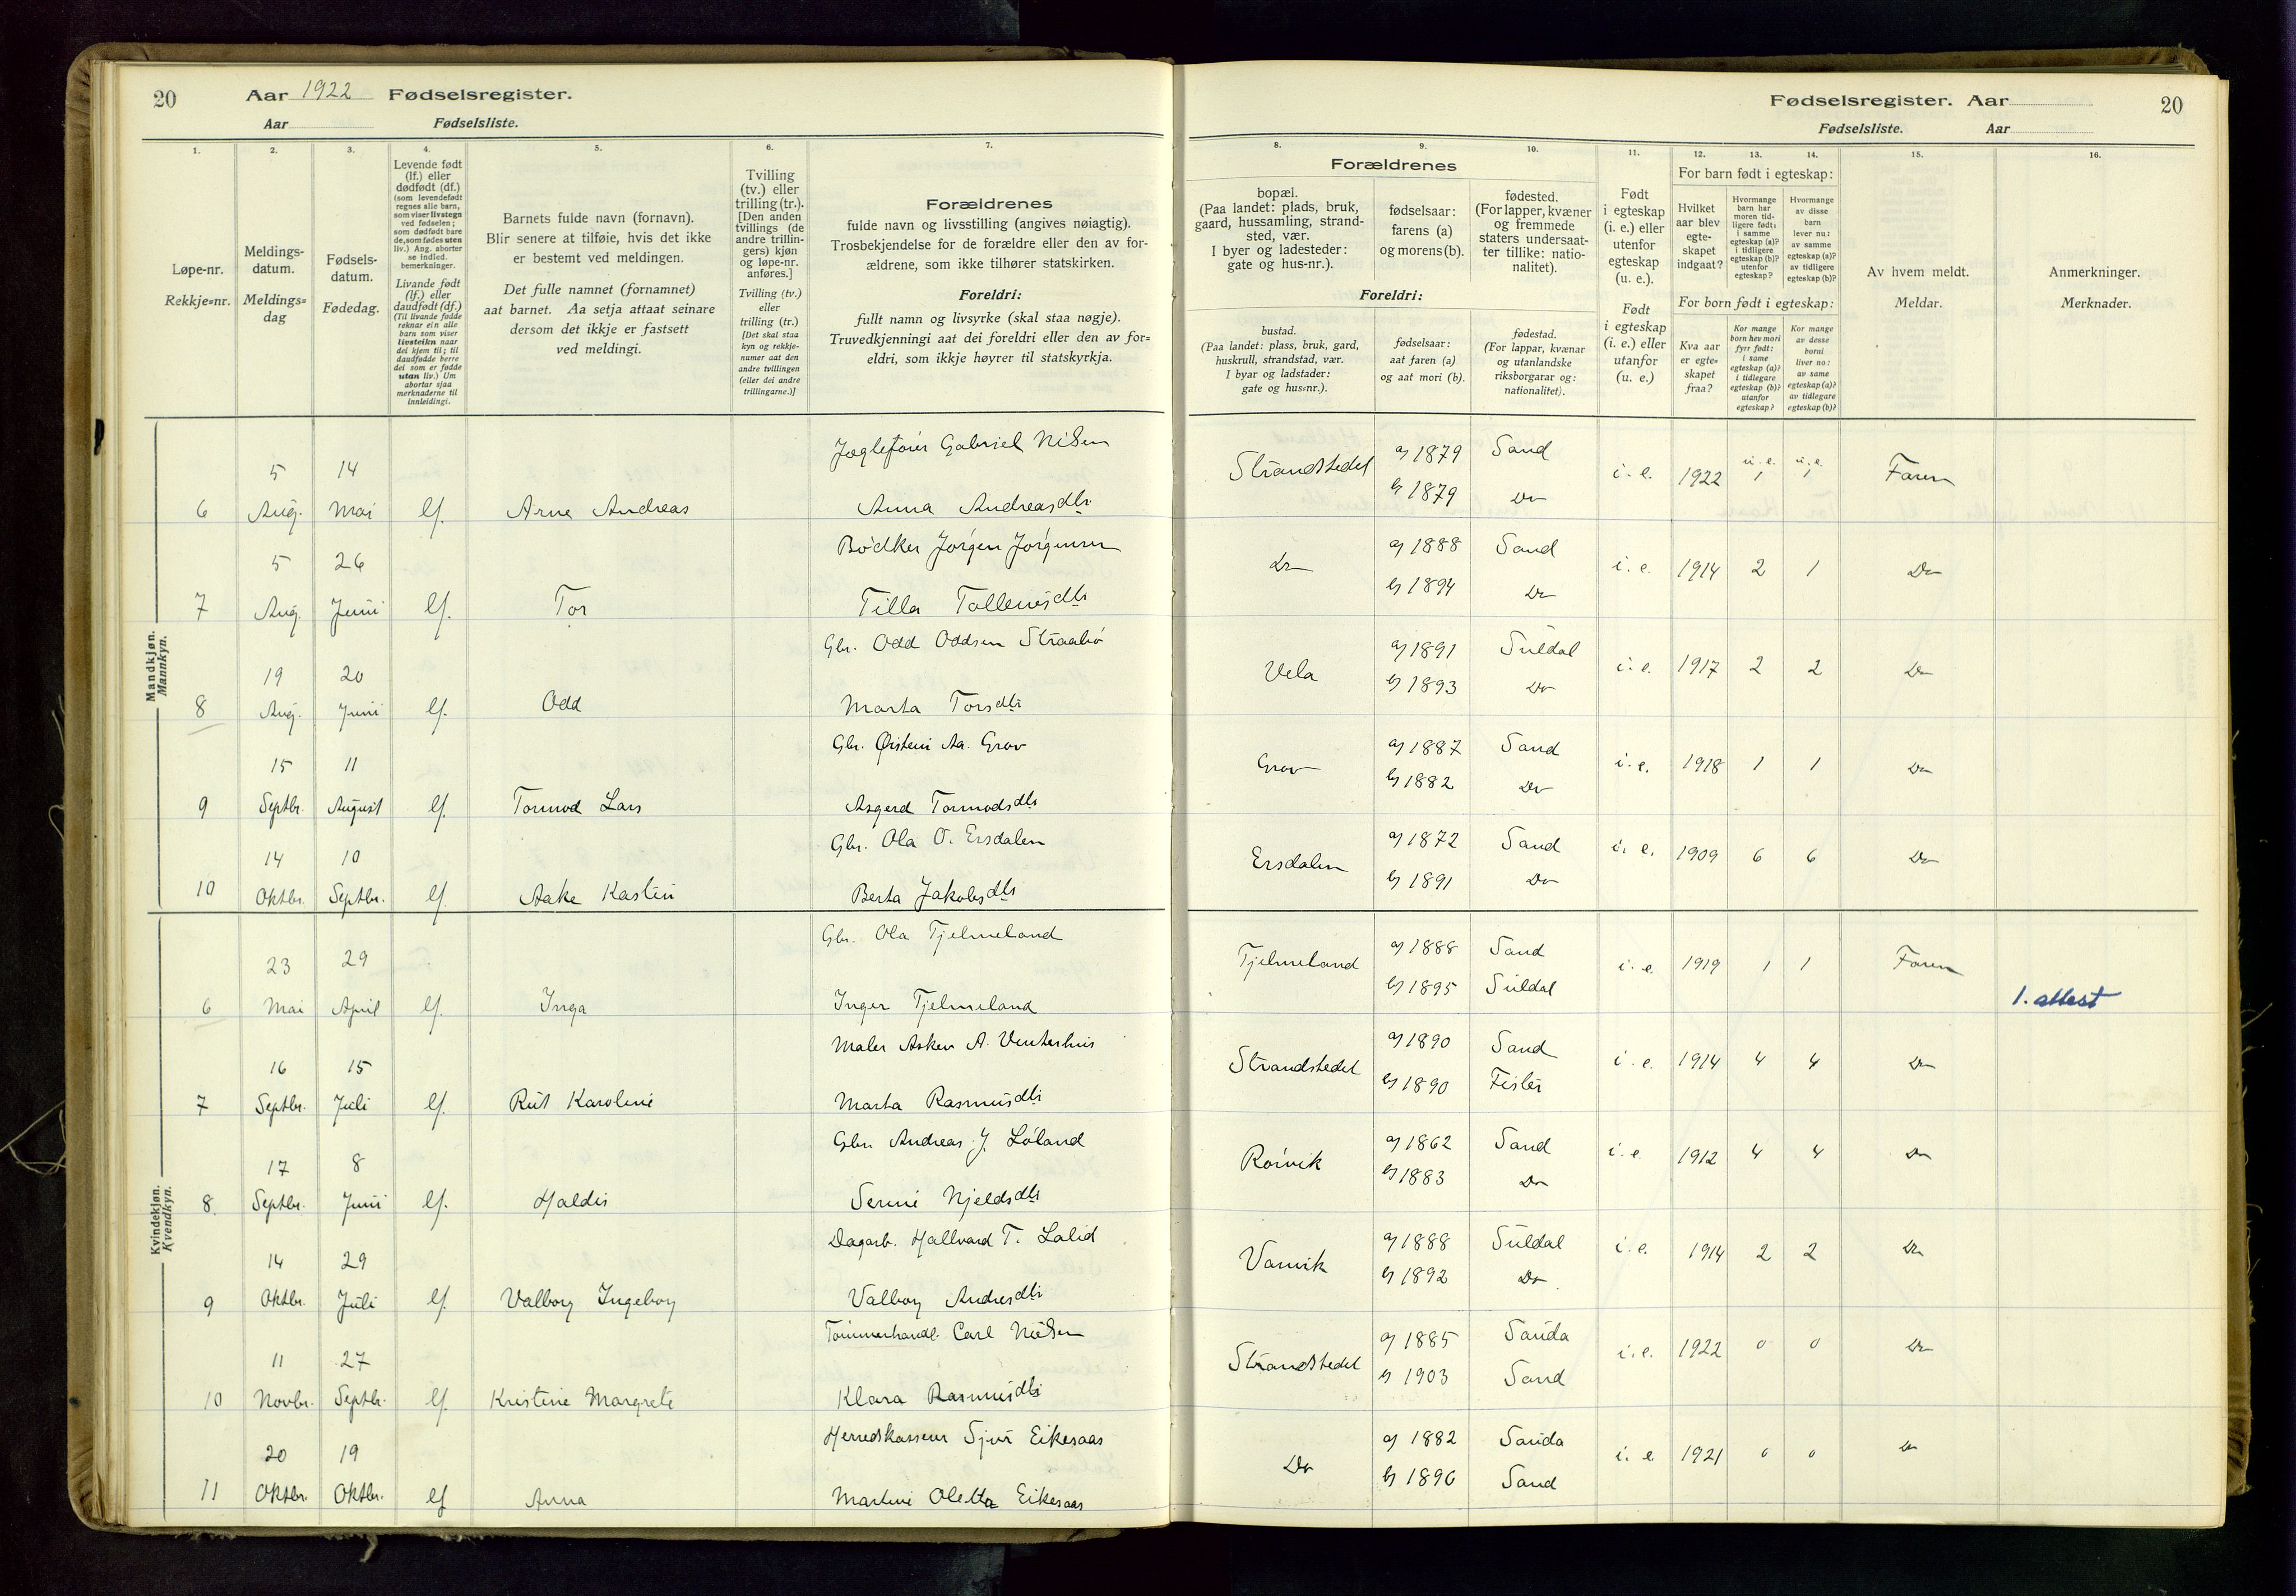 20 Aar 1922 Fødselsregister.
Aar Fødselsliste.
Fødselsregister. Aar 20
Fødselsliste. Aar
1. 2. 3. 4. 5. 6. 7.
Løpe-nr.
Rekkje=nr.
Meldings-
datum.
Meldings=
dag
Fødsels-
datum.
Fødedag.
Levende født
(lf.) eller
dødfødt (df.)
(som levendefødt
regnes alle barn,
som viser livstegn
ved fødselen;
som dødfødt bare
de, som fødes uten
liv.) Ang. aborter
se indled.
bemerkninger.
Livande født
(lf.) eller
daudfødt (df.)
(Til livande fødde
reknar ein alle
barn som viser
livsteikn naar
dei kjem til; til
daudfødde berre
dei som er fødde
utan liv.) Um
abortar sjaa
merknaderne til
innleidingi.
Barnets fulde navn (fornavn).
Blir senere at tilføie, hvis det ikke
er bestemt ved meldingen.
Det fulle namnet (fornamnet)
aat barnet. Aa setja attaat seinare
dersom det ikkje er fastsett
ved meldingi.
Tvilling
(tv.) eller
trilling (tr.).
[Den anden
tvillings (de
andre trillin-
gers) kjøn
og løpe-nr.
anføres.]
Tvilling (tv.)
eller
trilling (tr.)
[Det skal staa
kyn og rekkje-
numer aat den
andre tvillingen
(eller dei andre
trillingarne.)]
Forældrenes
fulde navn og livsstilling (angives nøiagtig).
Trosbekjendelse for de forældre eller den av for-
ældrene, som ikke tilhører statskirken.
Foreldri:
fullt namn og livsyrke (skal staa nøgje).
Truvedkjenningi aat dei foreldri eller den av for=
eldri, som ikkje høyrer til statskyrkja.
8. 9. 10. 11. 12. 13. 14. 15. 16.
Forældrenes
bopæl.
(Paa landet: plads, bruk,
gaard, hussamling, strand-
sted, vær.
I byer og ladesteder:
gate og hus-nr.).
fødselsaar:
farens (a)
og morens (b).
fødested.
(For lapper, kvæner
og fremmede
staters undersaat-
ter tillike: natio-
nalitet).
Foreldri:
bustad.
(Paa landet: plass, bruk, gard,
huskrull, strandstad, vær.
I byar og ladstader:
gate og hus=nr.).
fødselsaar:
aat faren (a)
og aat mori (b).
fødestad.
(For lappar, kvænar
og utanlandske
riksborgarar og:
nationalitet).
Født
i egteskap
(i. e.) eller
utenfor
egteskap
(u. e.).
Født
i egteskap
(i. e.) eller
utanfor
egteskap
(u. e.)
For barn født i egteskap:
Hvilket
aar blev
egte-
skapet
indgaat?
Hvormange
barn har
moren tid-
ligere født:
i samme
egteskap (a)?
i tidligere
egteskap (b)?
utenfor
egteskap?
Hvormange
av disse
barn
lever nu:
av samme
egteskap (a)?
av tidligere
egteskap (b)?
For born født i egteskap:
Kva aar
er egte=
skapet
fraa?
Kor mange
born hev mori
fyrr født:
i same
egteskap (a)?
i tidlegare
egteskap (b)?
utanfor
egteskap?
Kor mange
av desse
borni
liver no:
av same
egteskap (a)?
av tidlegare
egteskap (b)?
Av hvem meldt.
Meldar.
Anmerkninger.
Merknader.
Mandkjøn.
Mannkyn.
Gabriel Nilsen Strandstedet a) 1879 Sand i. e. 1922 u. e. 1 u. e. 1 Faren
5 14 b) 1879 Do
6 Aug. Mai lf. Arne Andreas Anna Andreasdtr
Bødker Jørgen Jørgensen Do a) 1888 Sand i. e. 1914 2 1 Do
5 26 b) 1894 Do
7 Aug. Juni lf. Tor Tilla Tollevsdtr
Gbr. Odd Oddsen Straabø Vela a) 1891 Suldal i. e. 1917 2 2 Do
19 20 b) 1893 Do
8 Aug. Juni lf. Odd Marta Torsdtr
Gbr. Øistein Aa. Grov Grov a) 1887 Sand i. e. 1918 1 1 Do
15 11 b) 1882 Do
9 Septbr. August lf. Tormod Lars Asgerd Tormodsdtr
Gbr. Ola O. Ersdalen Ersdalen a) 1872 Sand i. e. 1909 6 6 Do
14 10 b) 1891 Do
10 Oktbr. Septbr. lf. Aake Kastin Berta Jakobsdtr
Kvindekjøn.
Kvendkyn.
Gbr. Ola Tjelmeland Tjelmeland a) 1888 Sand i. e. 1919 1 1 Faren
23 29 b) 1895 Suldal 1. attest
6 Mai April lf. Inga Inger Tjelmeland
Maler Asken A. Vinterhus Strandstedet a) 1890 Sand i. e. 1914 4 4 Do
16 15 b) 1890 Fister
7 Septbr. Juli lf. Rut Karoline Marta Rasmusdtr
Gbr. Andreas J. Løland Rørvik a) 1862 Sand i. e. 1912 4 4 Do
17 8 b) 1883 Do
8. Septbr. Juni lf. Haldis Serine Njeldsdtr
Dagarb. Hallvard T. Lalid Varvik a) 1888 Suldal i. e. 1914 2 2 Do
14 29 b) 1892 Do.
9 Oktbr. Juli lf. Valborg Ingeborg Valborg Andresdtr
Tømmerhandl. Carl Nilsen Strandstedet a) 1885 Sauda i. e. 1922 0 0 Do
11 27 b) 1903 Sand
10 Novbr. Septbr. lf. Kristine Margrete Klara Rasmusdtr
Herredskasserer Sjur Eikesaas Do a) 1882 Sauda i. e 1921 0 0 Do
20 19 b) 1896 Sand
11 Oktbr. Oktbr. lf Anna Martine Oletta Eikesaas